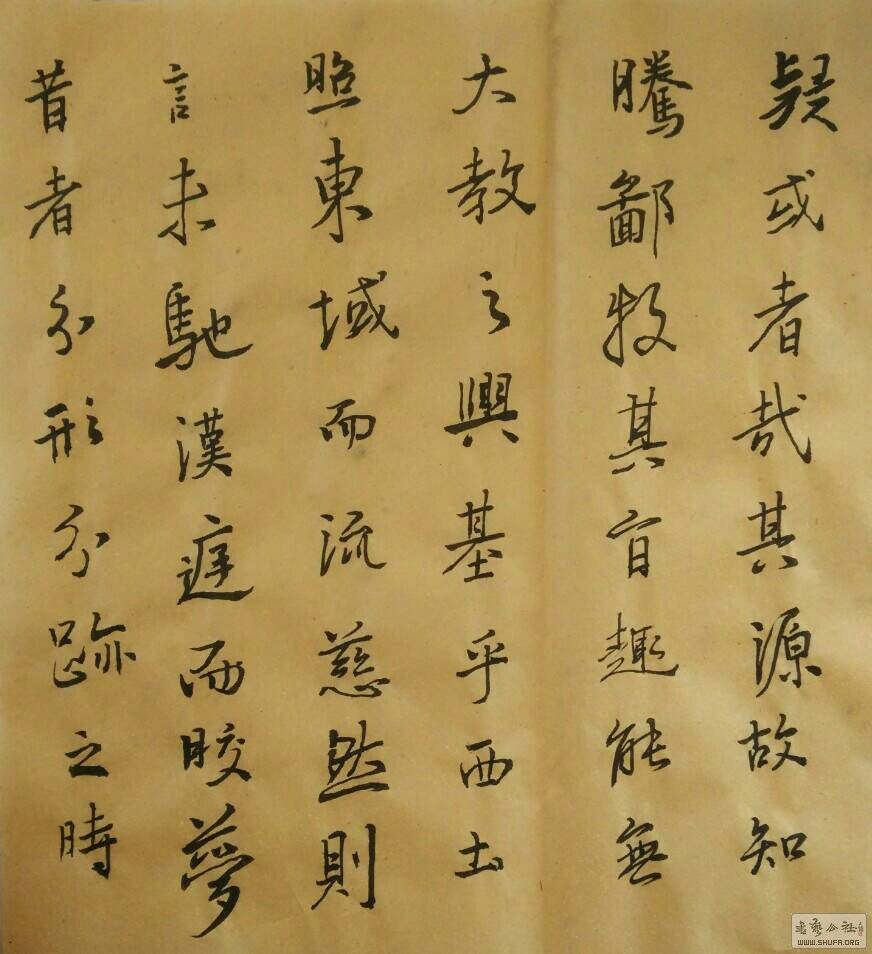 疑或者哉其源故知
騰鄙投其旨趣能無
大教之興基乎西土
照東域而流慈然則
言未馳漢庭而皎夢
昔者分形分跡之時
書藝公社
WWW.SHUFA.ORG